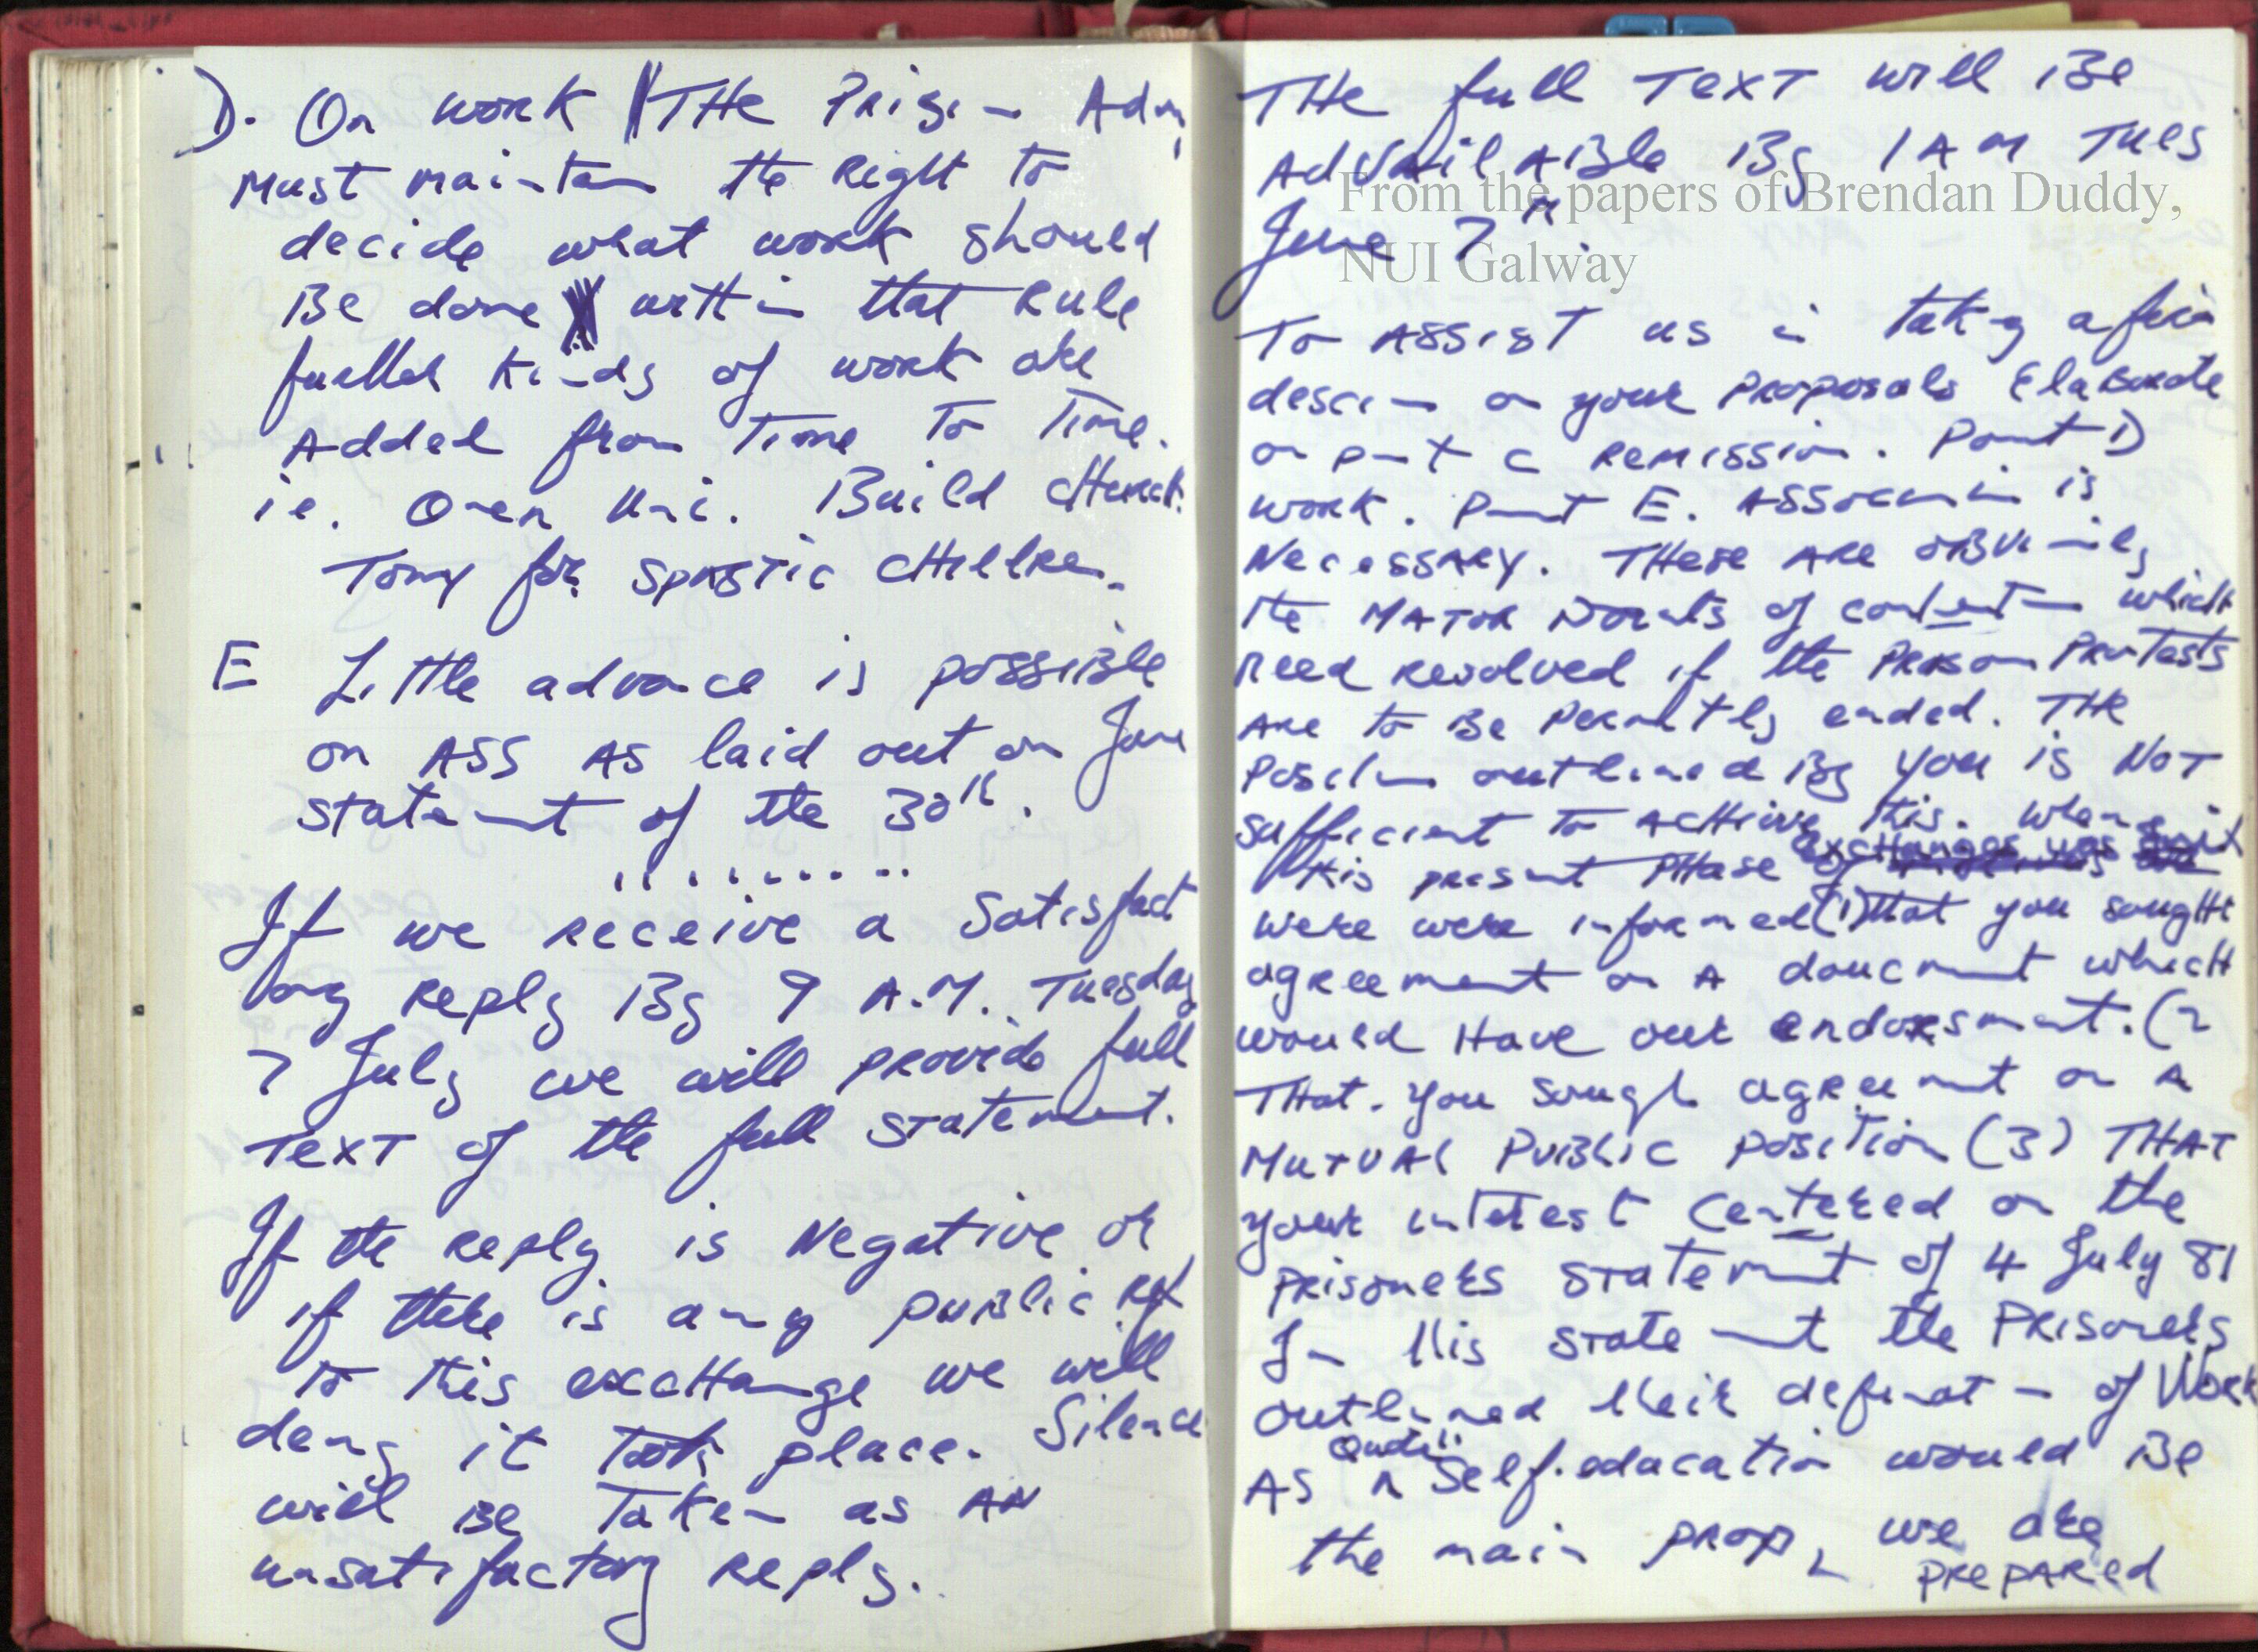 D. On work THE Prison Adm
Must maintain the Right to
decide what work should
Be done within that Rule
further kinds of work are
Added from Time To Time.
ie. Open Uni. Build Church.
Tomy for spastic CHillren.
E Little advance is possible
on ASS AS laid out on June
statement of the 30th.
If we receive a Satisfact
ory reply By 9 A.M. Tuesday
7 July we will provide full
Text of the full statement.
If the reply is Negative or
if there is any public ref
to this excHange we will
deny it took place. Silence
will Be Taken as AN
unsatisfactory reply.
THe full TexT will Be
AdVailABle By 1 AM Tues
June 7th
From the papers of Brendan Duddy,
NUI Galway
To Assist us in taking a firm
descion on your Proposals Elaborate
on point C Remission. Point D
work. Point E. Association is
Necessary. THese Are oBviously
the MAJOR points of contention whicH
need resolved if the Prison Protests
Are to Be Permantly ended. THe
Position outlined By you is NoT
sufficient To AcHieve this. When
this present PHase of excHanges was
were were informed (1) that you sougHt
agreement on A doucment whicH
would Have our endorsment. (2
THat. you sough agreement on A
MuTUAl PuBlic Position (3) THAT
your interest Centered on the
prisoners statement of 4 July 81
In this statement the Prisoners
outlined their defination of Work
As Quote " Self-education would Be
the main prop, we are
prepared